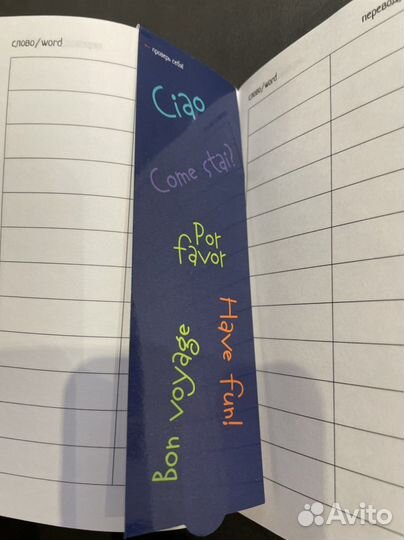 слово/word
— проверь себя!
Ciao
Come stai?
Por
favor
Have fun!
Bon voyage
слово/word
перевод
Avito